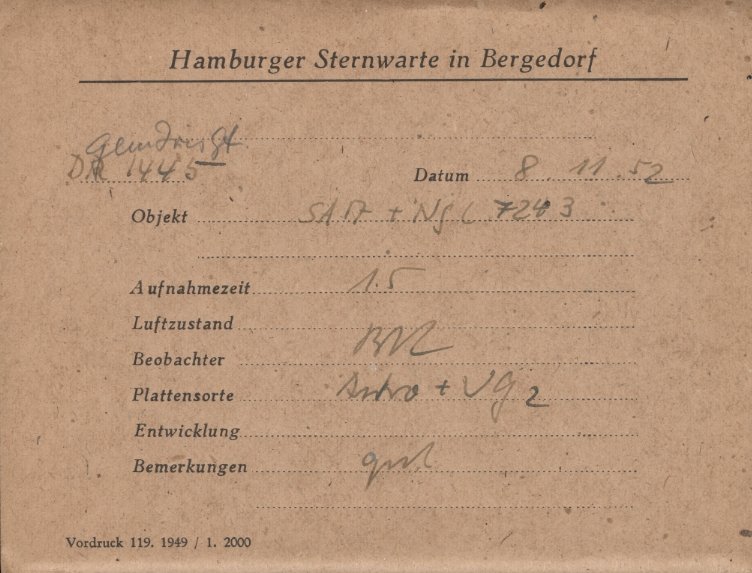 Hamburger Sternwarte in Bergedorf
DR 1445
Datum 8. 11. 52
Objekt SA 17 + NGC 7243
Aufnahmezeit 1.5
Luftzustand
Beobachter
Plattensorte + VG 2
Entwicklung
Bemerkungen gut
Vordruck 119. 1949 / 1. 2000